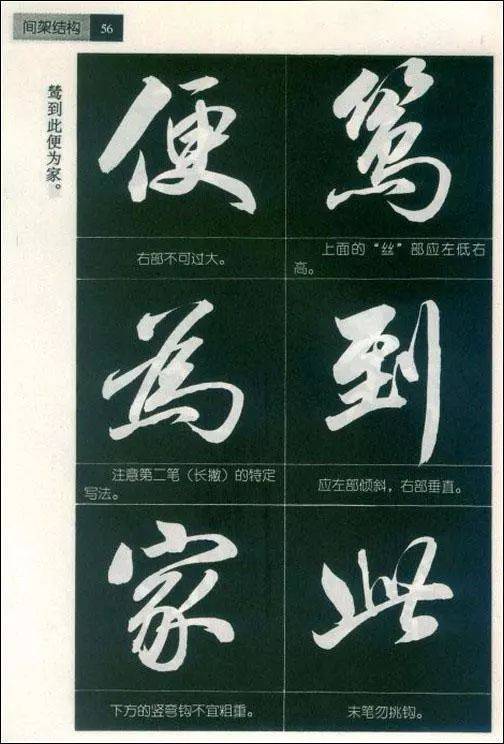 间架结构 56
鸶到此便为家。
鸶
上面的“丝”部应左低右
高。
到
应左部倾斜，右部垂直。
此
末笔勿挑钩。
便
右部不可过大。
為
注意第二笔（长撇）的特定
写法。
家
下方的竖弯钩不宜粗重。